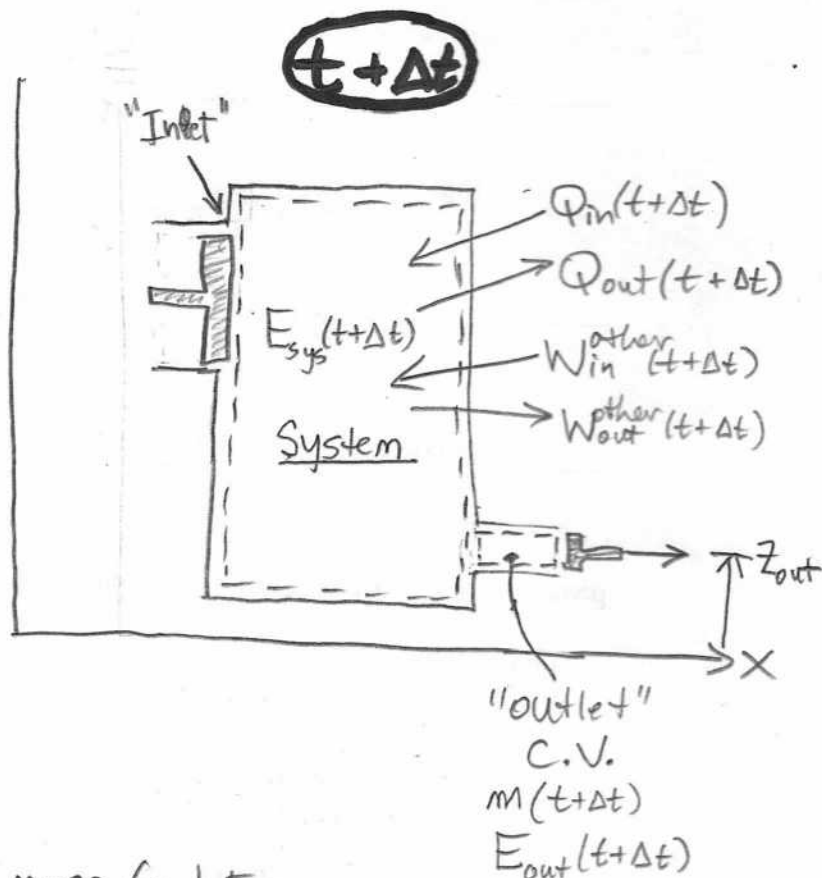 t + Δt
"Inlet"
Qin(t+Δt)
Qout(t+Δt)
Esys(t+Δt)
Win^other(t+Δt)
Wout^other(t+Δt)
System
Zout
X
"outlet"
C.V.
m(t+Δt)
Eout(t+Δt)